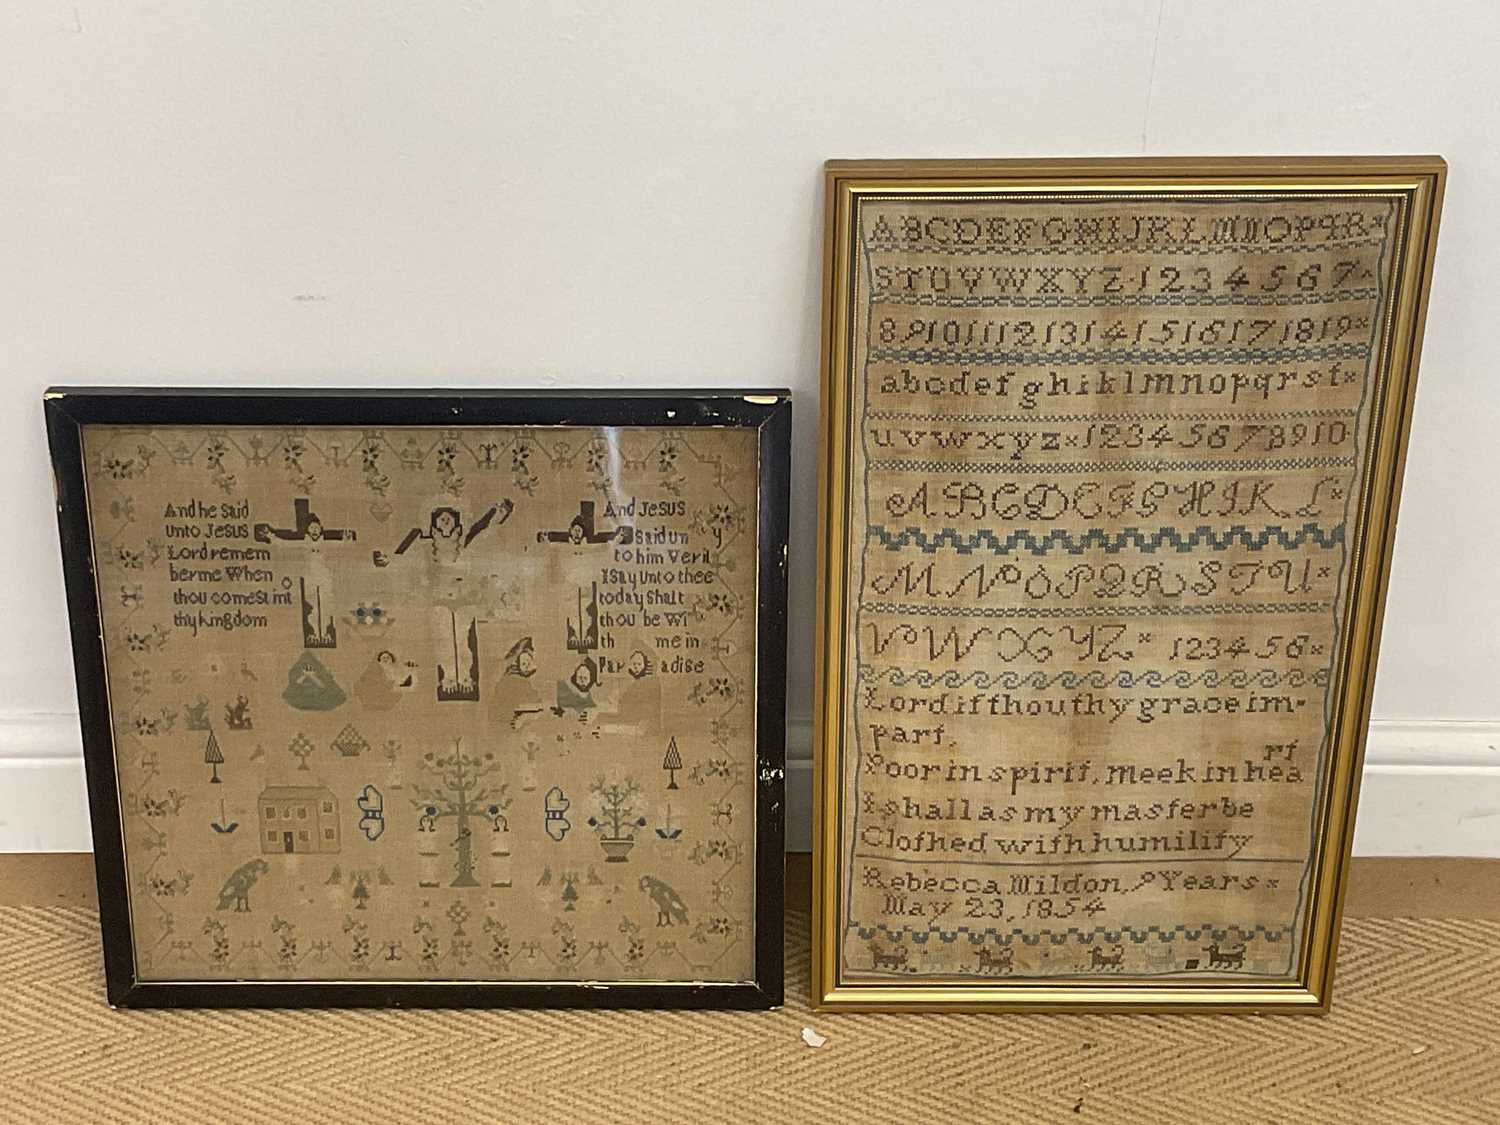 And he Said
unto Jesus
Lord remem
ber me When
thou comest int
o
thy kingdom
And Jesus
Said un y
to him Veril
I Say unto thee
today Shalt
thou be Wi
th me in
Par adise
ABCDEFGHIJKLMNOPQR×
STUVWXYZ·1234567×
8910111213141516171819×
abcdefghiklmnopqrst×
uvwxyz×12345678910
ABCDEFGHIKL×
MNOPQRSTU×
VWXYZ×123456×
Lord if thou thy grace im-
part,
rt
Poor in spirit, meek in hea
I shall as my master be
Clothed with humility
Rebecca Mildon, 9 Years×
May 23, 1854